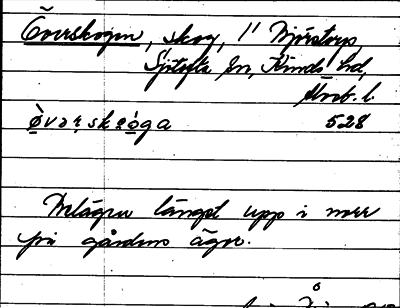 Överskogen, skog, 1/1 Björstorp,
Sjötofta sn, Kinds hd,
Älvsb. l.
øvərskoga 528
Belägen längst upp i norr
på gårdens ägor.